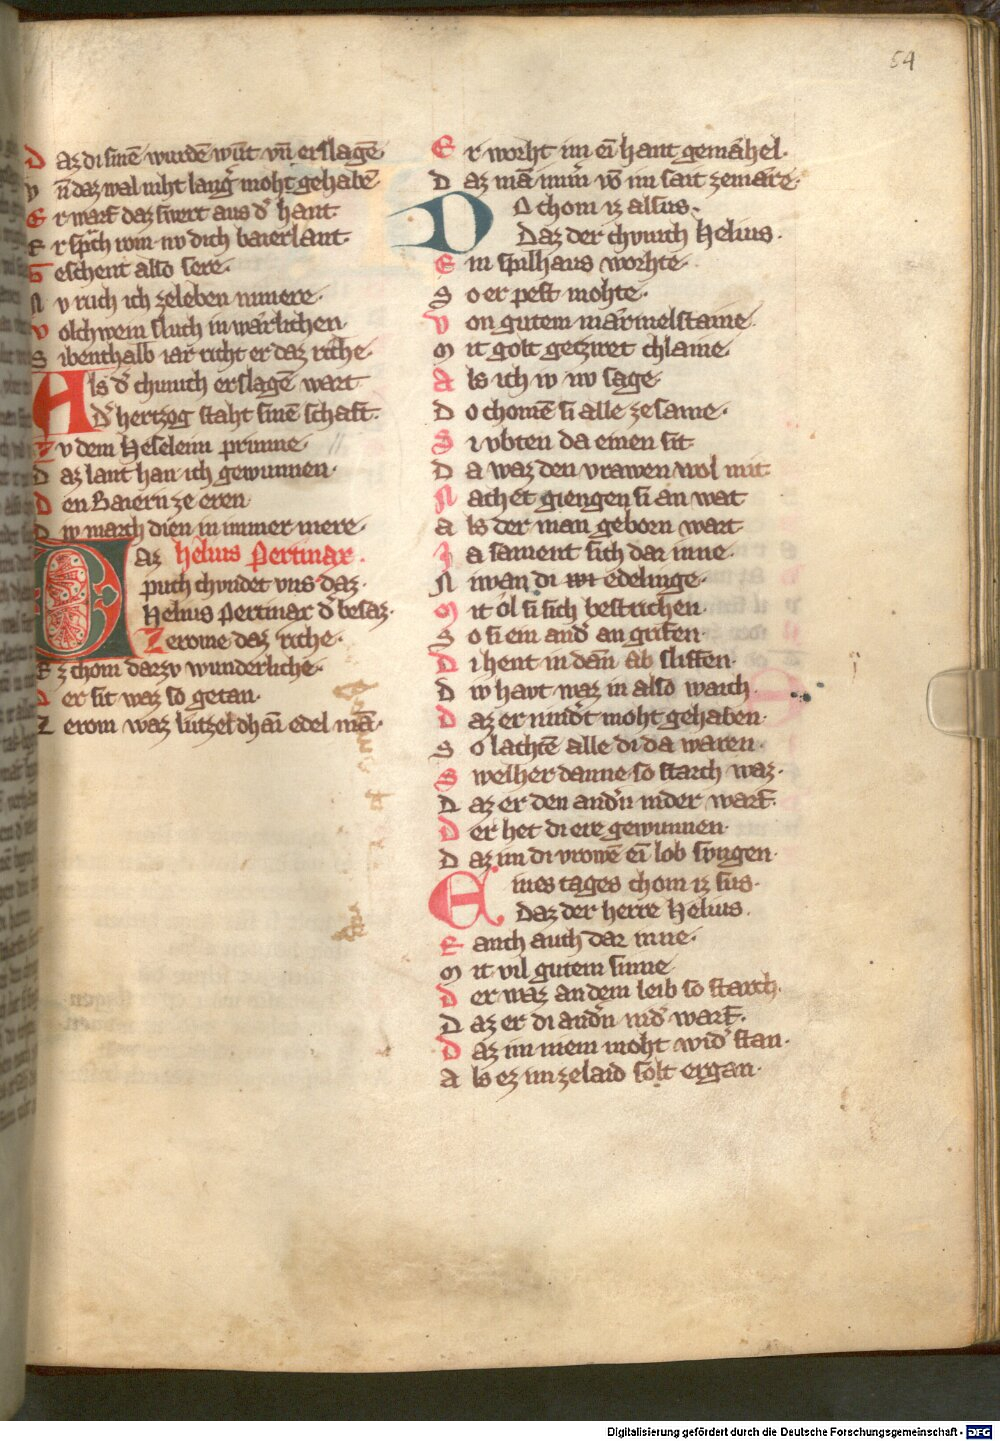 54
D az di sinē wurdē wūt vn̄ erslagē
V n̄ daz wal niht lang̾ moht gehabē
E r warf daz swert aus d̾ hant·
E r sp̾ch win nv dich baierlant·
G eschent also sere·
N v ruch ich zeleben nimere·
V olchwem sluch in wärlichen·
S ibenthalb iar richt er daz riche·
Als d̾ chunich erslagē wart
D̾ hertzog staht sinē schaft·
Z v dem Heseleinī prunne·
D az lant han ich gewunnen·
D en Baiern ze eren·
D iv march dien in immer mere·
Daz helius Pertinax·
puch chvndet vns daz·
Helius Pertinax d̾ besaz·
Zerome daz riche·
E z chom darzv wunderliche·
D er sit waz so getan·
Z erom waz lützel dhaī edel mā·
E r worht im eī hant gemähel·
D az mā nimm̾ vō im sait ze märe·
DO chom iz alsus·
Daz der chvnich Helius·
E in spilhaus worhte·
S o er pest mohte·
V on gutem märmelstaine·
M it golt gezieret chlaine·
A ls ich iv nv sage·
D o chomē si alle zesame·
S i vbten da einen sit·
D a waz den vrawen wol mit·
N achet giengen si an wat
A ls der man geborn wart·
Z asament sich dar inne·
N iwan di edelinge·
M it öl si sich bestrichen·
S o si ein and̾ an grifen·
D i hent in dān ab sliffen·
D iv havt waz in also waich·
D az er nind̾t moht gehaben·
S o lachtē alle di da waren·
S welher danne so starch waz·
D az er den and̾n nider warf·
D er het di ere gewunnen·
D az im di vrowē eī lob svngen·
Eines tages chom iz sus·
Daz der herre Helius·
R anch auch dar inne·
M it vil gutem sinne
D er waz an dem leib so starch·
D az er di and̾n nid̾ warf·
D az im niem moht wid̾ stan·
A ls ez im zelaid solt ergan·
Digitalisierung gefördert durch die Deutsche Forschungsgemeinschaft - DFG